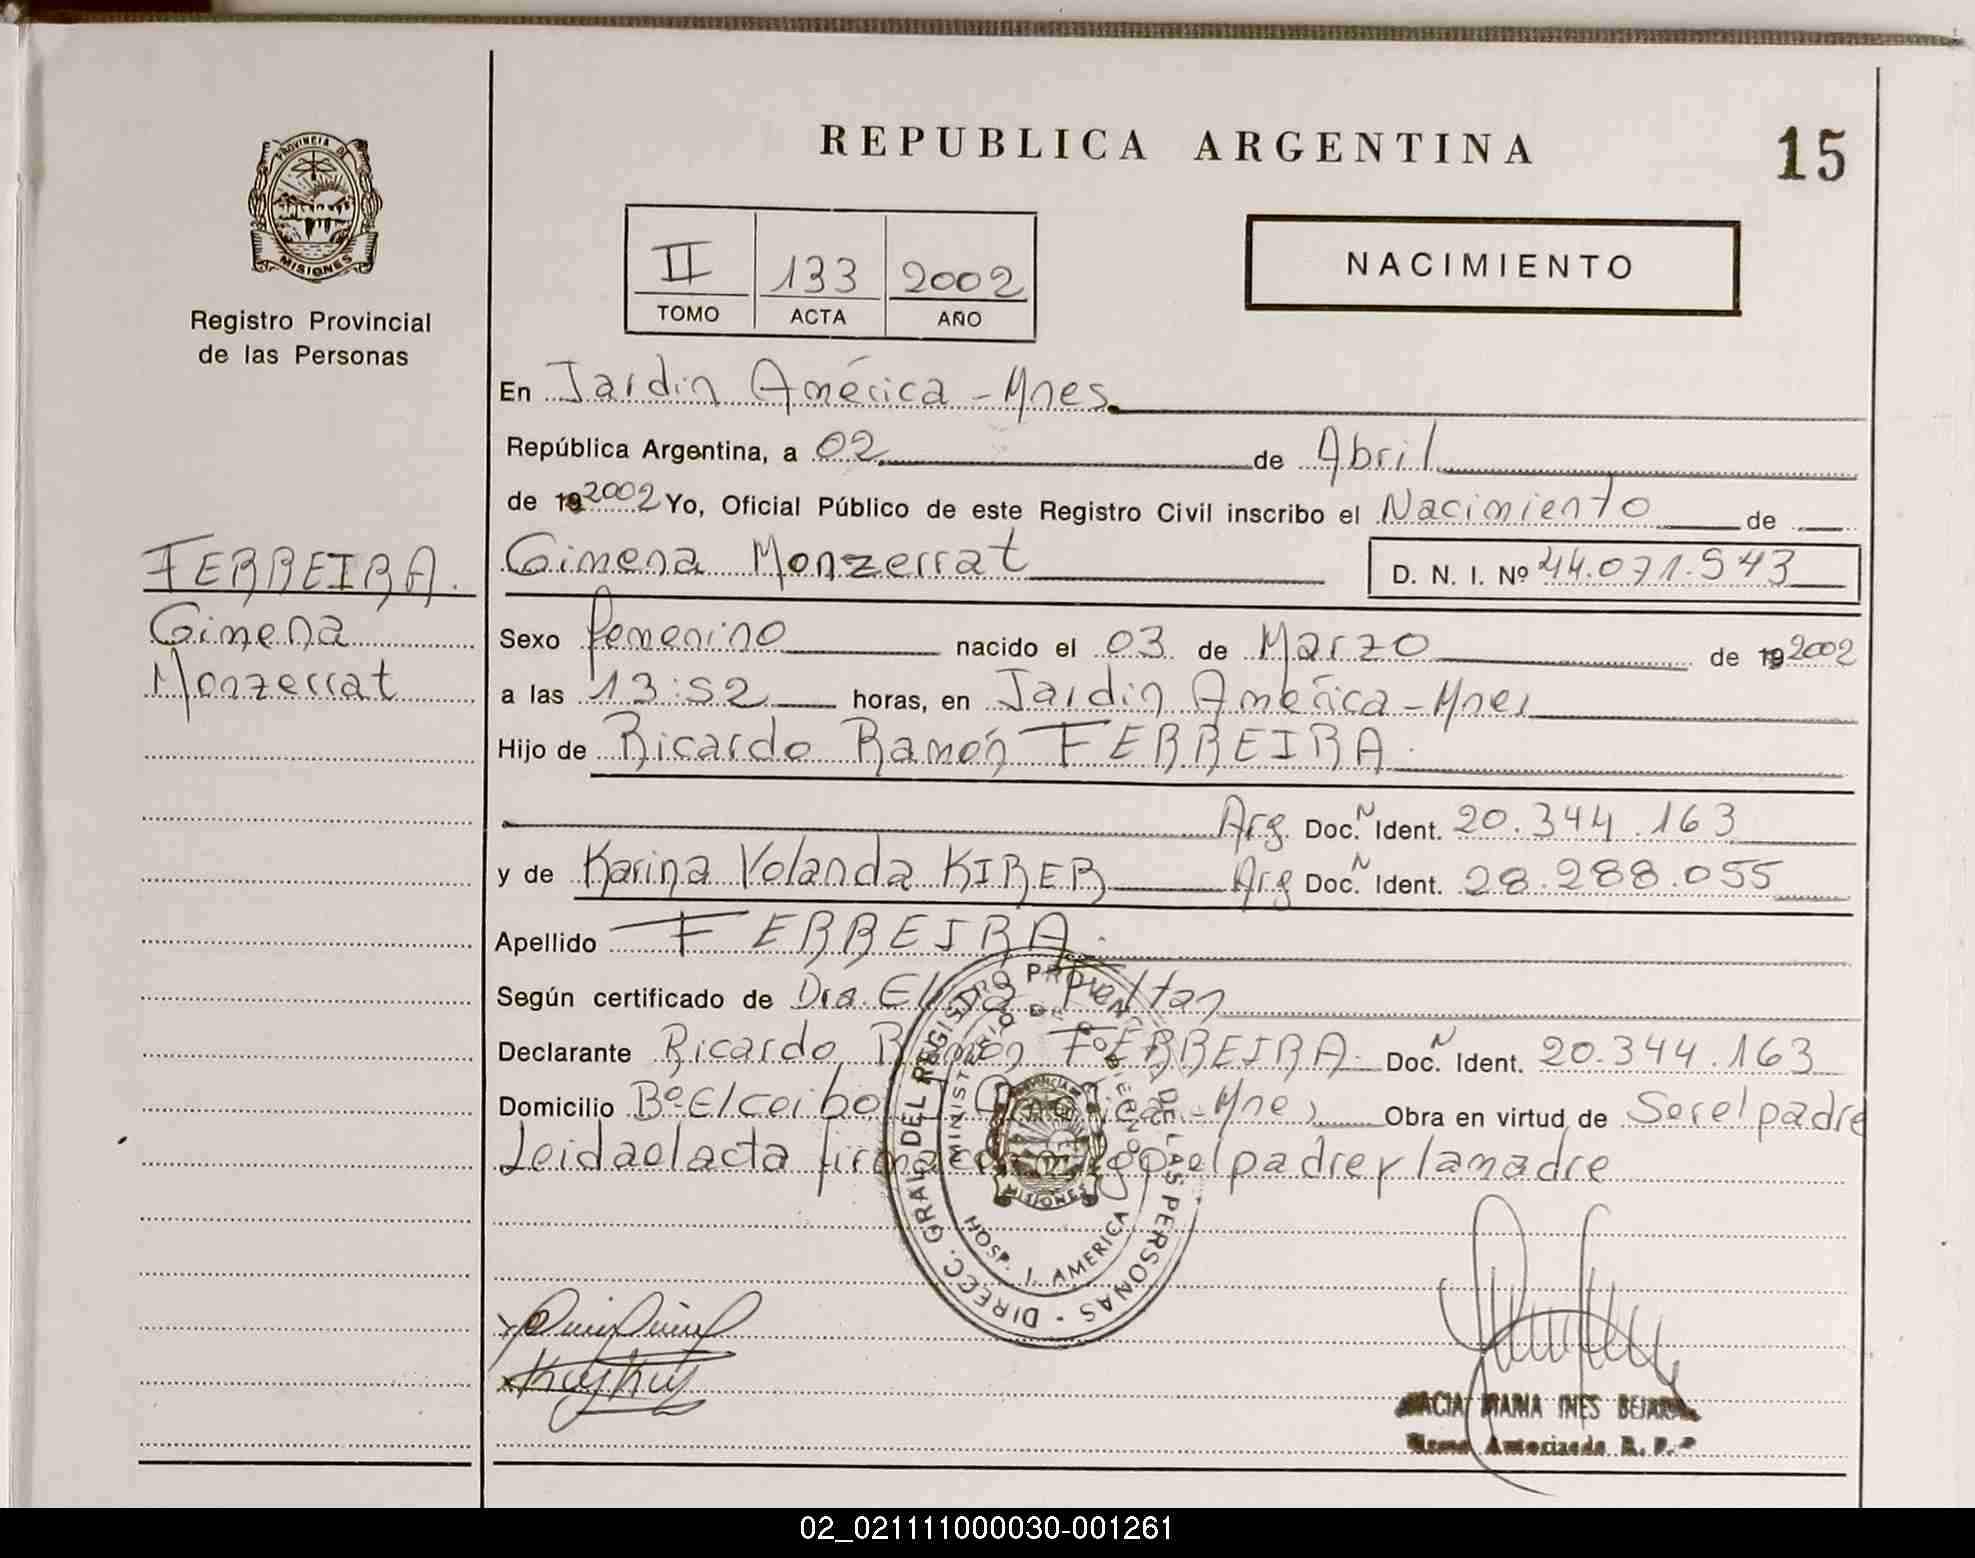 REPUBLICA ARGENTINA
15
PROVINCIA DE
MISIONES
Registro Provincial
de las Personas
II 133 2002
TOMO ACTA AÑO
NACIMIENTO
En Jardin América - Mnes
República Argentina, a 02 de Abril
de 192002 Yo, Oficial Público de este Registro Civil inscribo el Nacimiento de
FERREIRA.
Gimena
Monzerrat
Gimena Monzerrat D. N. I. Nº 44.071.543
Sexo femenino nacido el 03 de Marzo de 192002
a las 13:52 horas, en Jardin América - Mnes
Hijo de Ricardo Ramón FERREIRA.
Arg. Doc. N Ident. 20.344.163
y de Karina Yolanda KIRER Arg Doc. N Ident. 28.288.055
Apellido FERREIRA.
Según certificado de Dra.
Declarante Ricardo Ramón FERREIRA. Doc. N Ident. 20.344.163
Domicilio Bº El ceibo J. América - Mnes Obra en virtud de Ser el padre
Leida el acta firma conmigo el padre y la madre
DIRECC. GRAL. DEL REGISTRO PROVINC. DE LAS PERSONAS
MINISTERIO DE GOBIERNO
PROVINCIA DE
MISIONES
HOSP. J. AMERICA
MARIA INES
Autorizada R. P.
02_021111000030-001261